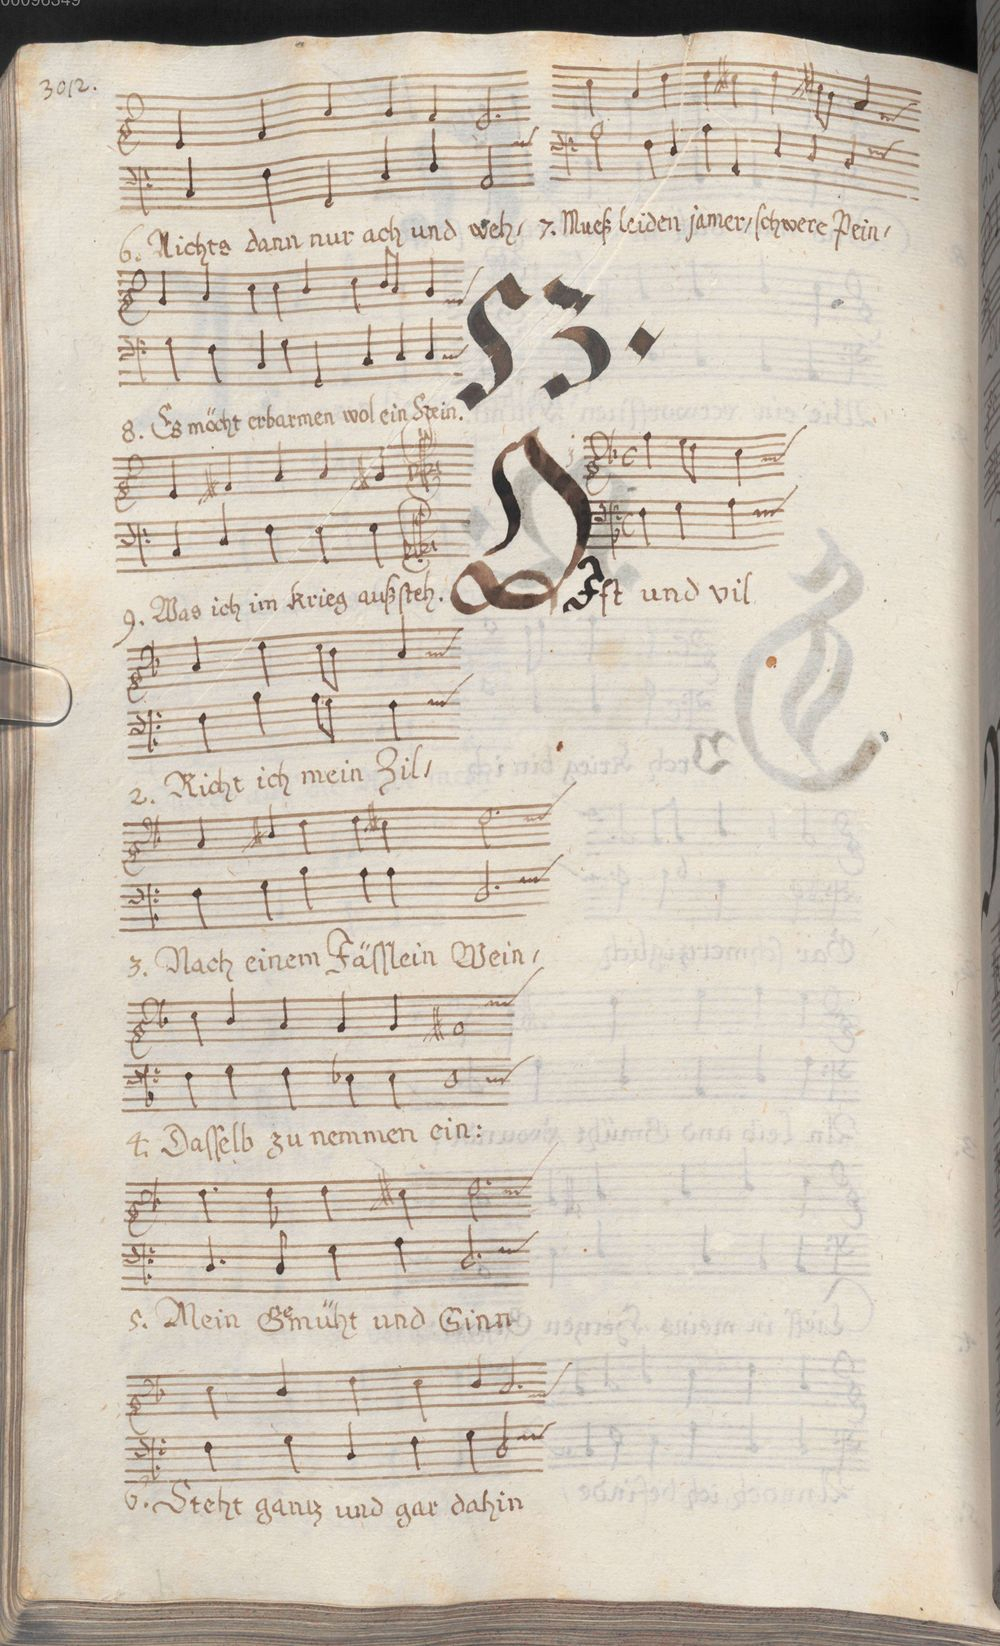 00096349
3012.
6. Nichts dann nur ach und weh/ 7. Mueß leiden jamer/ schwere Pein/
8. Es möcht erbarmen wol ein Stein.
53.
9. Was ich im krieg außsteh.
Offt und vil
2. Richt ich mein Zil/
3. Nach einem Fässlein Wein/
4. Dasselb zu nemmen ein:
5. Mein Gemüht und Sinn
6. Steht gantz und gar dahin